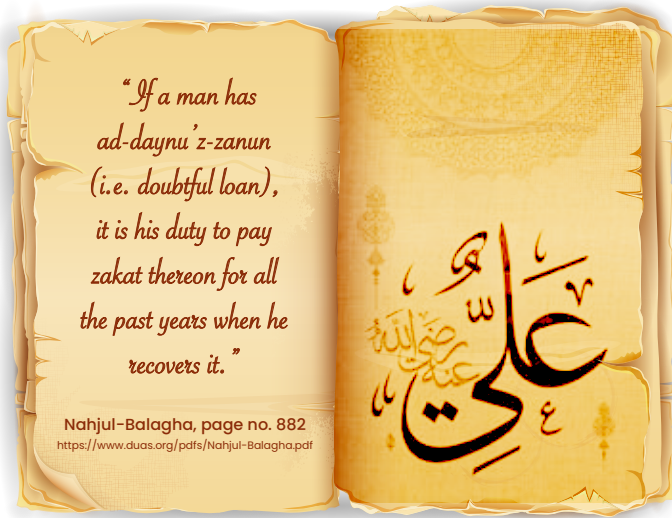 “If a man has
ad-daynu’z-zanun
(i.e. doubtful loan),
it is his duty to pay
zakat thereon for all
the past years when he
recovers it.”
Nahjul-Balagha, page no. 882
https://www.duas.org/pdfs/Nahjul-Balagha.pdf
عَلِيّ
رضي الله
عنه